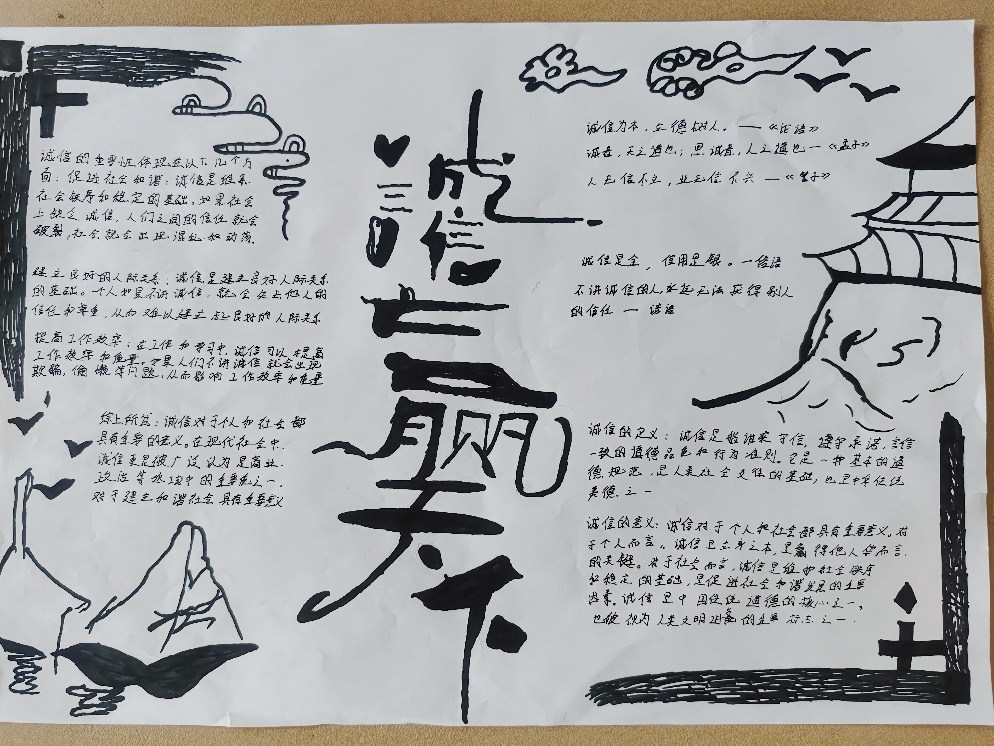 诚信的重要性体现在以下几个方
面：促进社会和谐：诚信是维系
社会秩序和稳定的基础。如果社会
上缺乏诚信，人们之间的信任就会
破裂，社会就会出现混乱和动荡。
建立良好的人际关系：诚信是建立良好人际关系
的基础。一个人如果不讲诚信，就会失去他人的
信任和尊重，从而难以建立起良好的人际关系
提高工作效率：在工作和学习中，诚信可以提高
工作效率和质量。如果人们不讲诚信就会出现
欺骗，偷懒等问题，从而影响工作效率和质量
综上所述：诚信对于个人和社会都
具有重要的意义。在现代社会中，
诚信更是被广泛认为是商业、
政治等领域中的重要之一，
对于建立和谐社会具有重要意义
诚信赢天下
诚信为本，立德树人。——《论语》
诚者，天之道也；思诚者，人之道也—《孟子》
人无信不立，业无信不兴—《
诚信是金，信用是银。—俗语
不讲诚信的人永远无法获得别人
的信任 — 谚语
诚信的定义：诚信是指诚实守信，遵守承诺，言行
一致的道德品质和行为准则。它是一种基本的道
德规范，是人类社会交往的基础，也是中华传统
美德之一
诚信的意义：诚信对于个人和社会都具有重要意义。对
于个人而言，诚信是立身之本，是赢得他人
的关键。对于社会而言，诚信是维护社会秩序
和稳定的基础，是促进社会和谐发展的重要
因素。诚信是中国传统道德的核心之一，
也被视为人类文明进步的重要标志之一.